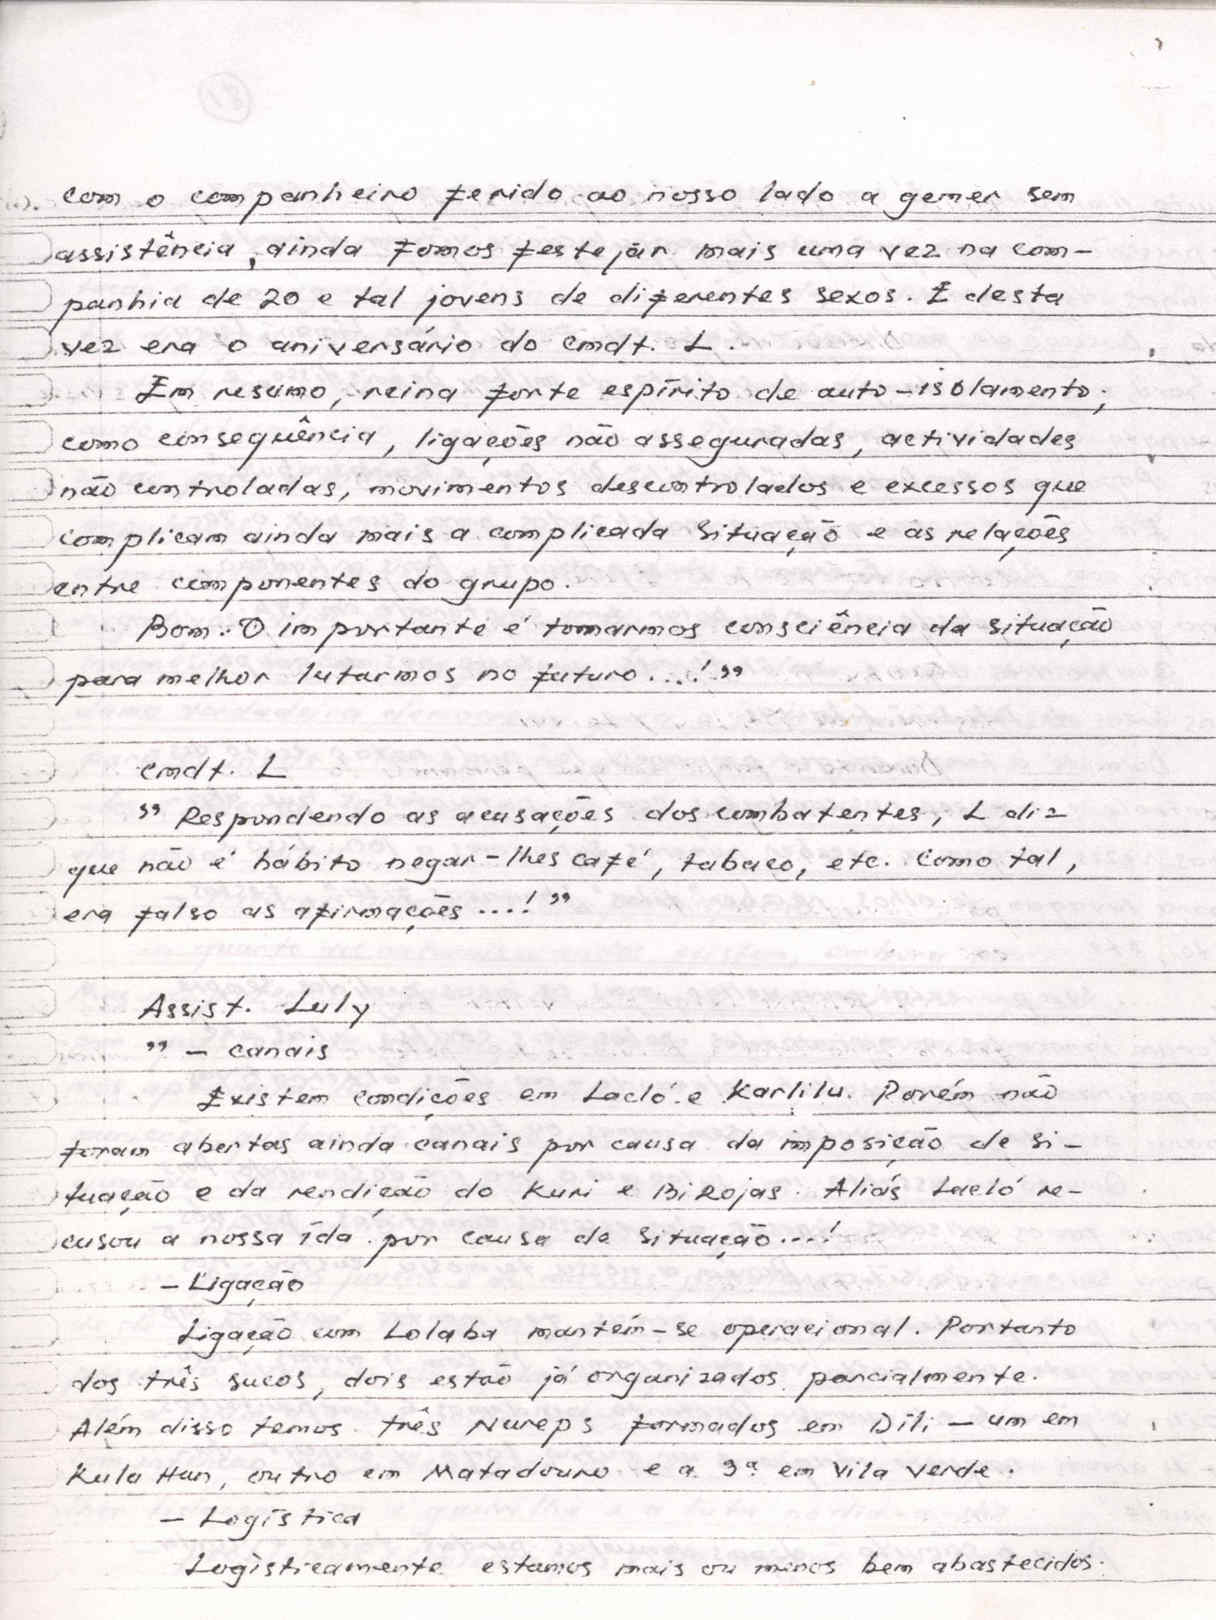 com o companheiro ferido ao nosso lado a gemer sem
assistência, ainda fomos festejar mais uma vez na com-
panhia de 20 e tal jovens de diferentes sexos. E desta
vez era o aniversário do cmdt. L.
Em resumo, reina forte espírito de auto-isolamento;
como consequência, ligações não asseguradas, actividades
não controladas, movimentos descontrolados e excessos que
complicam ainda mais a complicada situação e as relações
entre componentes do grupo.
Bom. O importante é tomarmos consciência da situação
para melhor lutarmos no futuro...!"
cmdt. L
" Respondendo as acusações dos combatentes, L diz
que não é hábito negar-lhes café, tabaco, etc. Como tal,
era falso as afirmações....!"
Assist. Luly
" - canais
Existem condições em Lacló e Karlilu. Porém não
foram abertas ainda canais por causa da imposição de si-
tuação e da rendição do Kuri e BiRojas. Aliás Lacló re-
cusou a nossa ída por causa de situação...!
- Ligação
Ligação com Lolaba mantém-se operacional. Portanto
dos três sucos, dois estão já organizados parcialmente.
Além disso temos três Nureps formados em Díli - um em
Kulu Hun, outro em Matadouro e a 3ª em Vila verde.
- Logística
Logìsticamente estamos mais ou menos bem abastecidos.